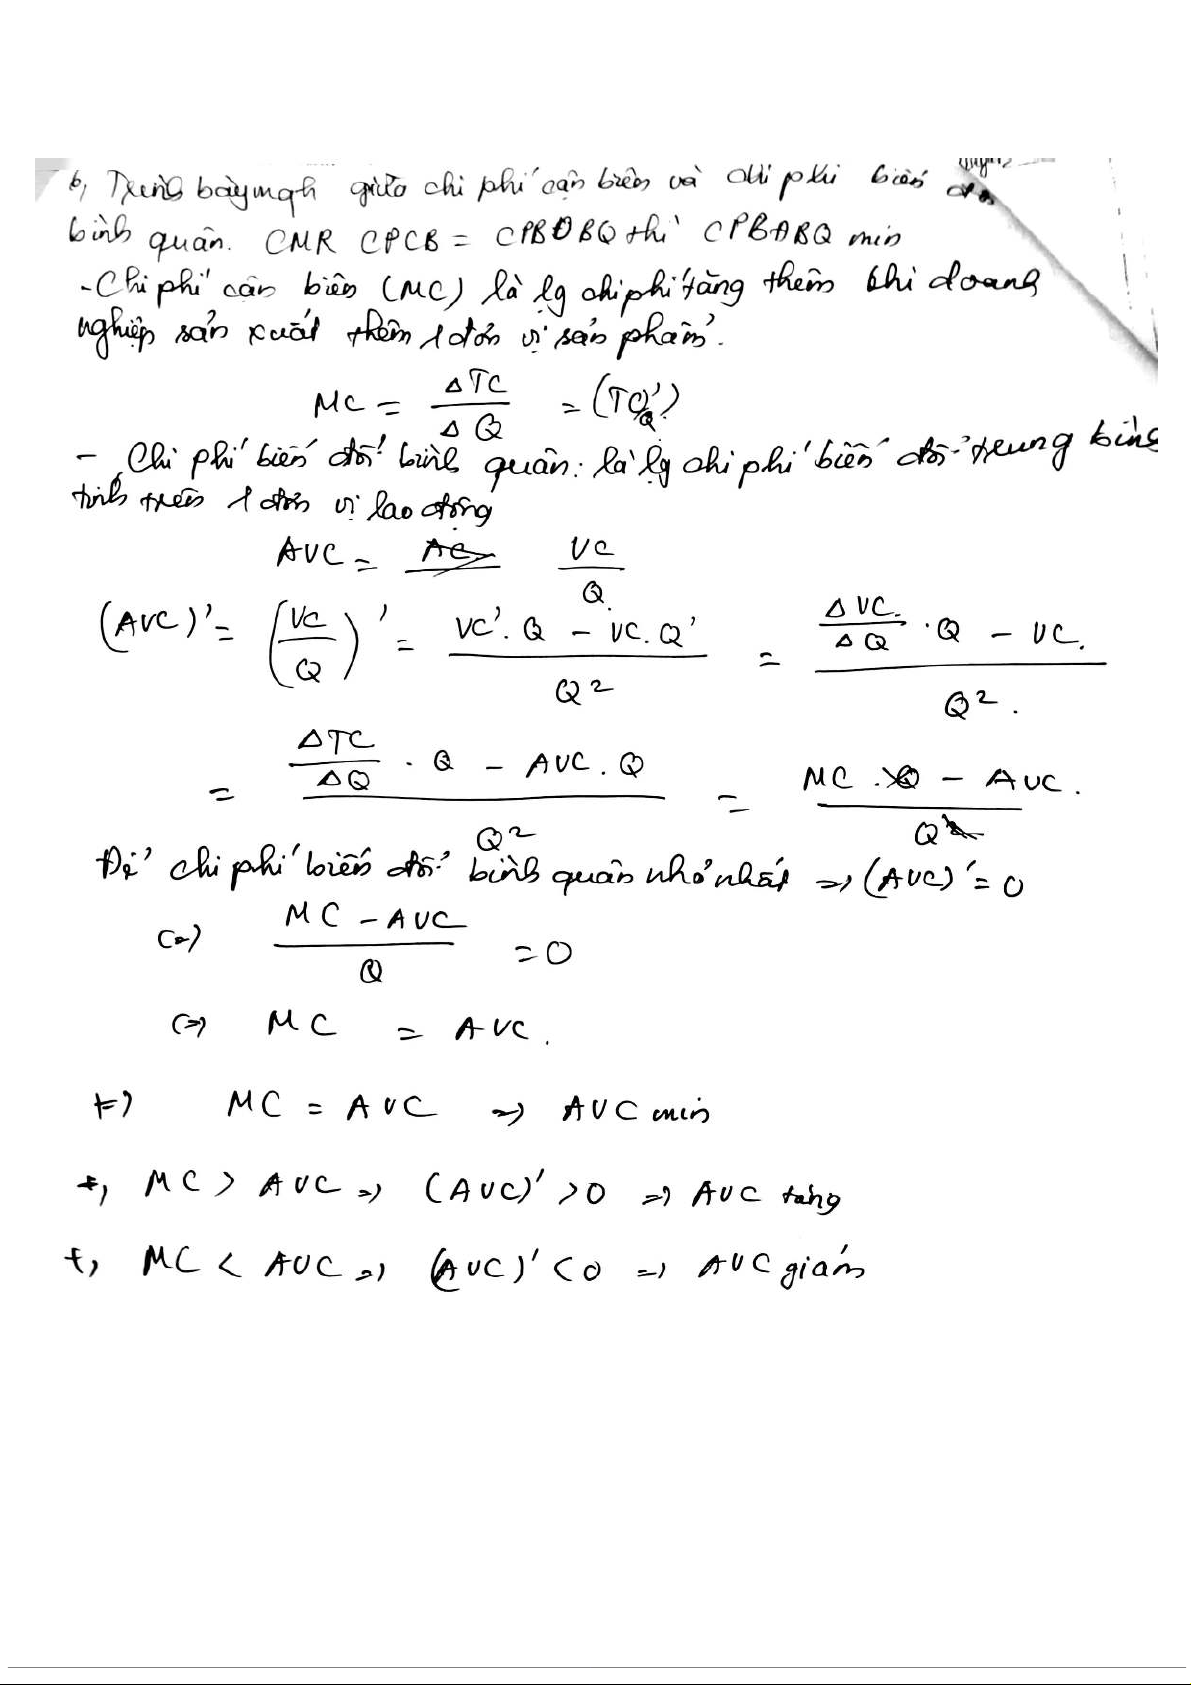 6, Trình bày mqh giữa chi phí cận biên và chi phí biến đổi
bình quân. CMR CPCB = CPBĐBQ thì CPBĐBQ min
- Chi phí cận biên (MC) là lg chi phí tăng thêm khi doanh
nghiệp sản xuất thêm 1 đơn vị sản phẩm.
MC = ΔTC / ΔQ = (TC'Q)
- Chi phí biến đổi bình quân: là lg chi phí biến đổi trung bình
tính trên 1 đơn vị lao động
AVC = VC / Q
(AVC)' = (VC / Q)' = VC'.Q - VC.Q' / Q² = ΔVC / ΔQ . Q - VC. / Q².
= ΔTC / ΔQ . Q - AVC.Q / Q² = MC - AVC. / Q
Để chi phí biến đổi bình quân nhỏ nhất => (AVC)' = 0
<=> MC - AVC / Q = 0
<=> MC = AVC.
+) MC = AVC => AVC min
+, MC > AVC => (AVC)' > 0 => AVC tăng
+, MC < AVC => (AVC)' < 0 => AVC giảm